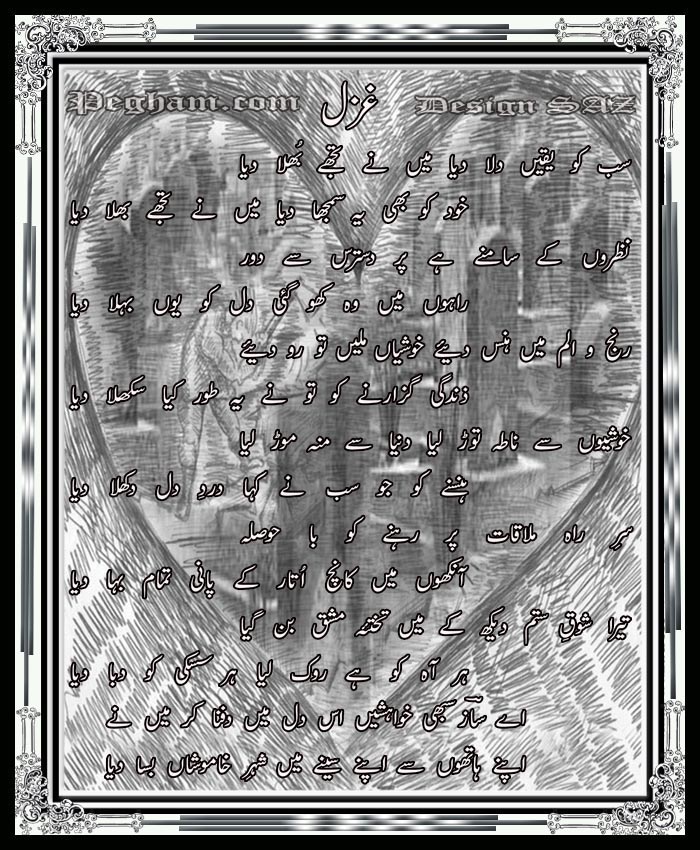 Pegham.com غزل Design SAZ
سب کو یقیں دلا دیا میں نے تجھے بُھلا دیا
خود کو بھی یہ سمجھا دیا میں نے تجھے بھلا دیا
نظروں کے سامنے ہے پر دسترس سے دور
راہوں میں وہ کھو گئی دل کو یوں بہلا دیا
رنج و الم میں ہنس دیئے خوشیاں ملیں تو رو دیئے
ذندگی گزارنے کو تو نے یہ طور کیا سکھلا دیا
خوشیوں سے ناطہ توڑ لیا دنیا سے منہ موڑ لیا
ہنسنے کو جو سب نے کہا دردِ دل دکھلا دیا
سرِ راہ ملاقات پر رہنے کو با حوصلہ
آنکھوں میں کانچ اُتار کے پانی تمام بہا دیا
تیرا شوقِ ستم دیکھ کے میں تختہٴ مشق بن گیا
ہر آہ کو ہے روک لیا ہر سسکی کو دبا دیا
اے سازؔ سبھی خواہشیں اس دل میں دفنا کر میں نے
اپنے ہاتھوں سے اپنے سینے میں شہرِ خاموشاں بسا دیا